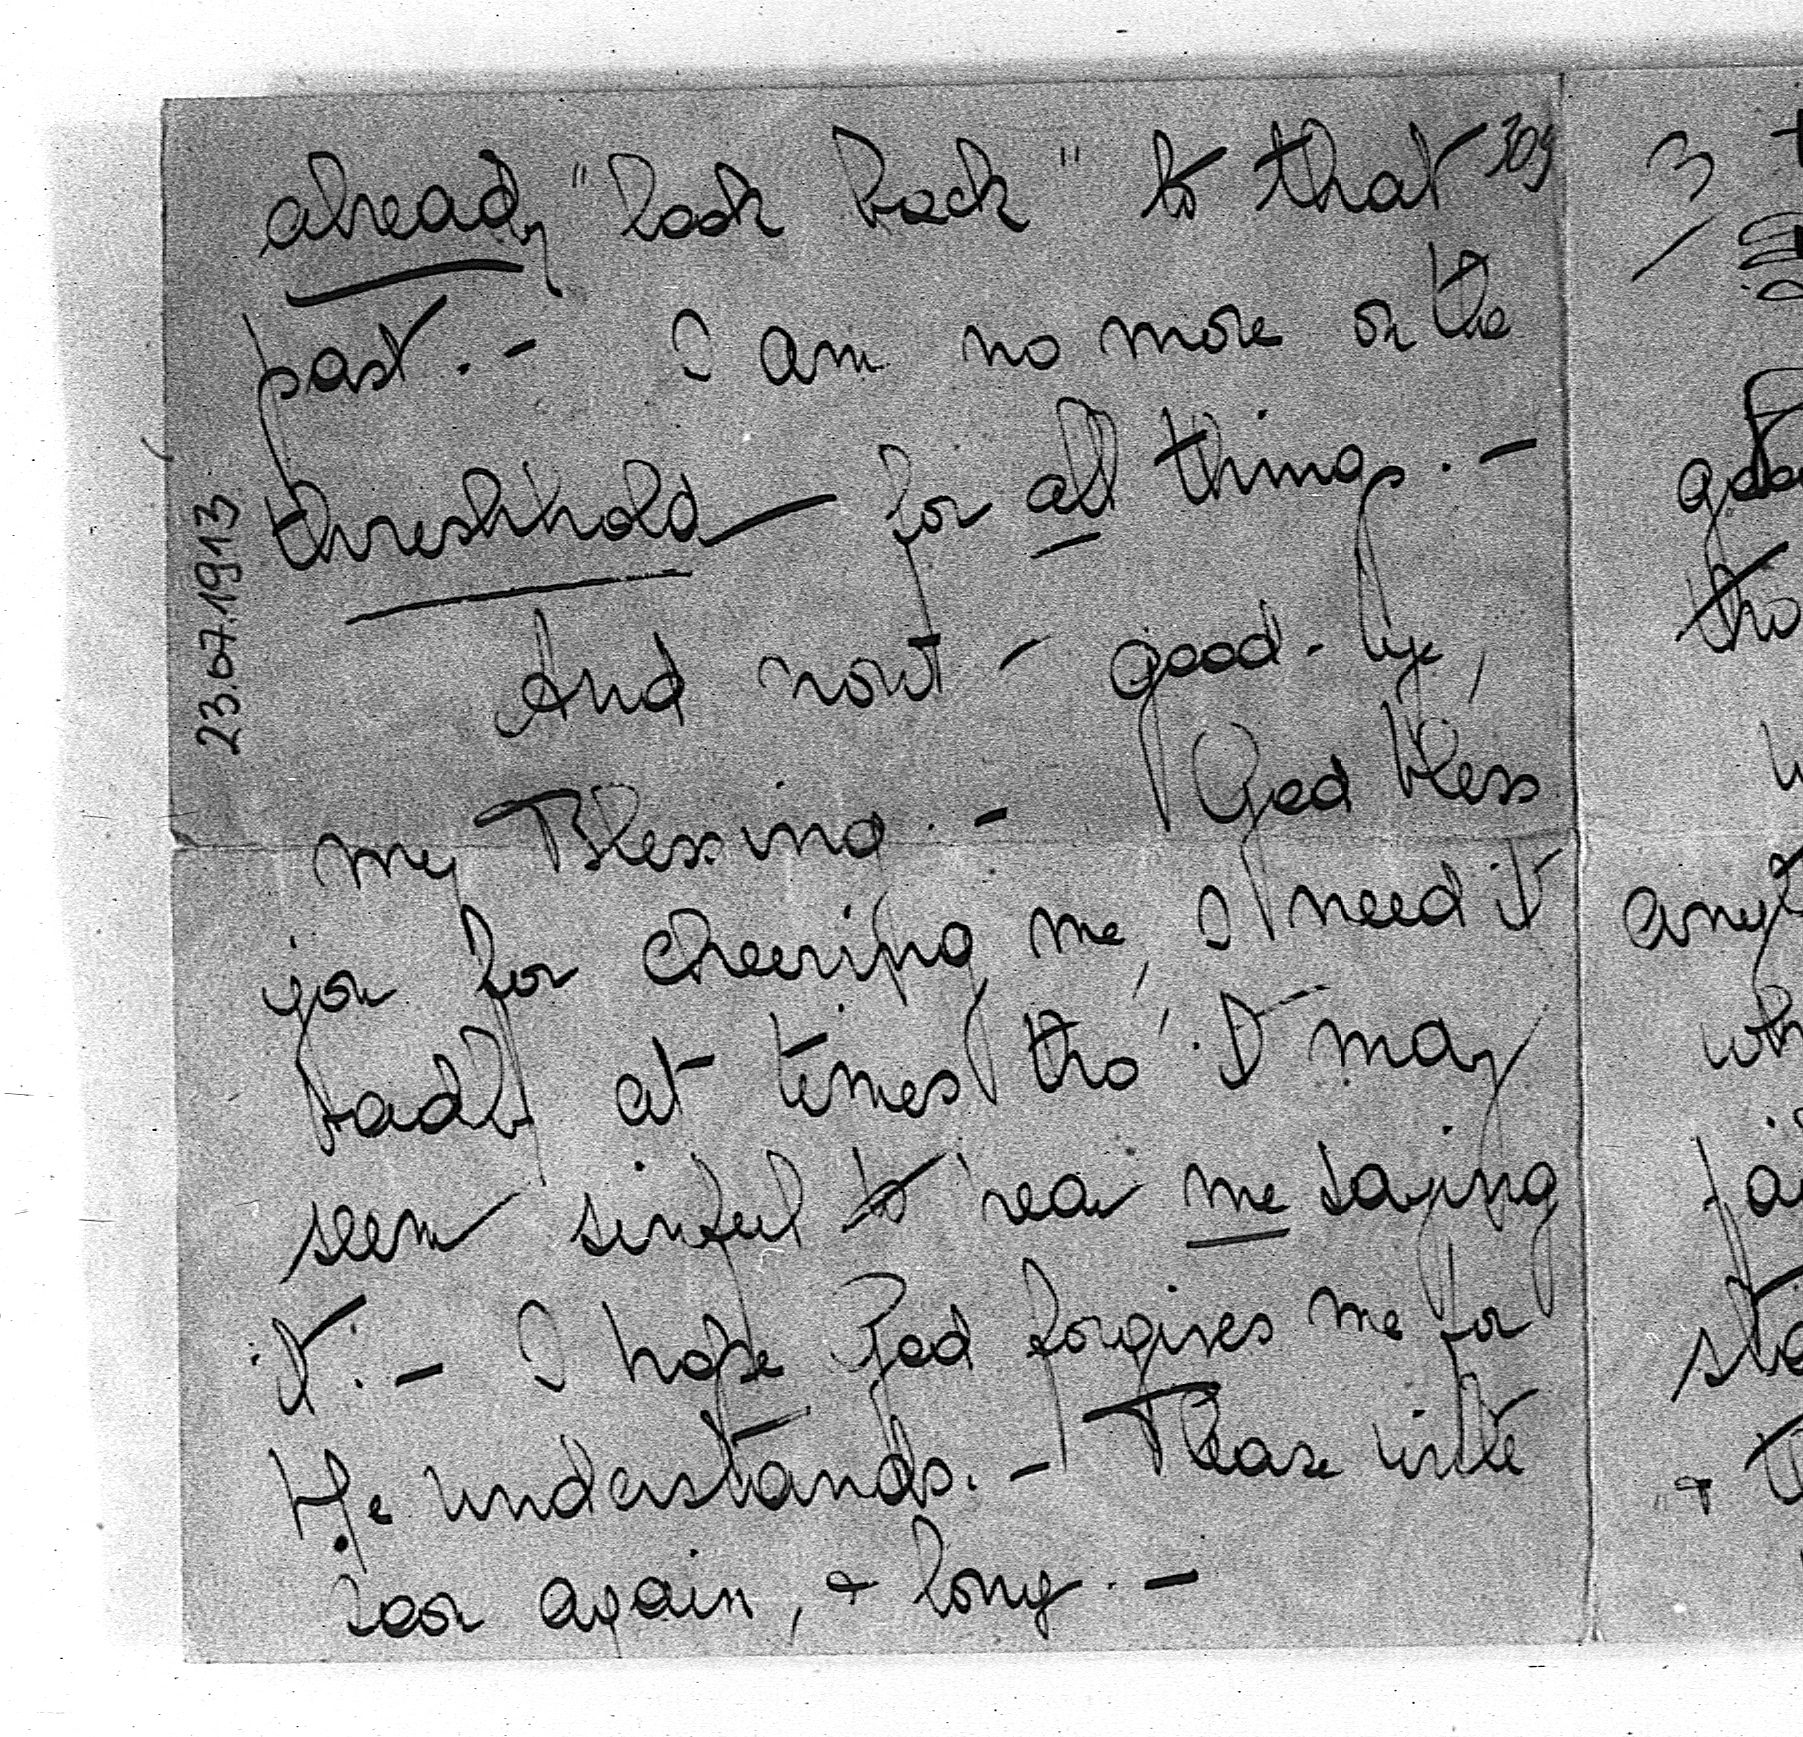 already "look back" to that 309
past. - I am no more on the
threshhold - for all things. -
And now - good-bye,
my Blessing. - God bless
you for cheering me, I need it
badly at times tho' it may
seem sinful to hear me saying
it. - I hope God forgives me for
He understands. - Please write
soon again, & long. -
23.07.1913
3
tho
any
wh
&